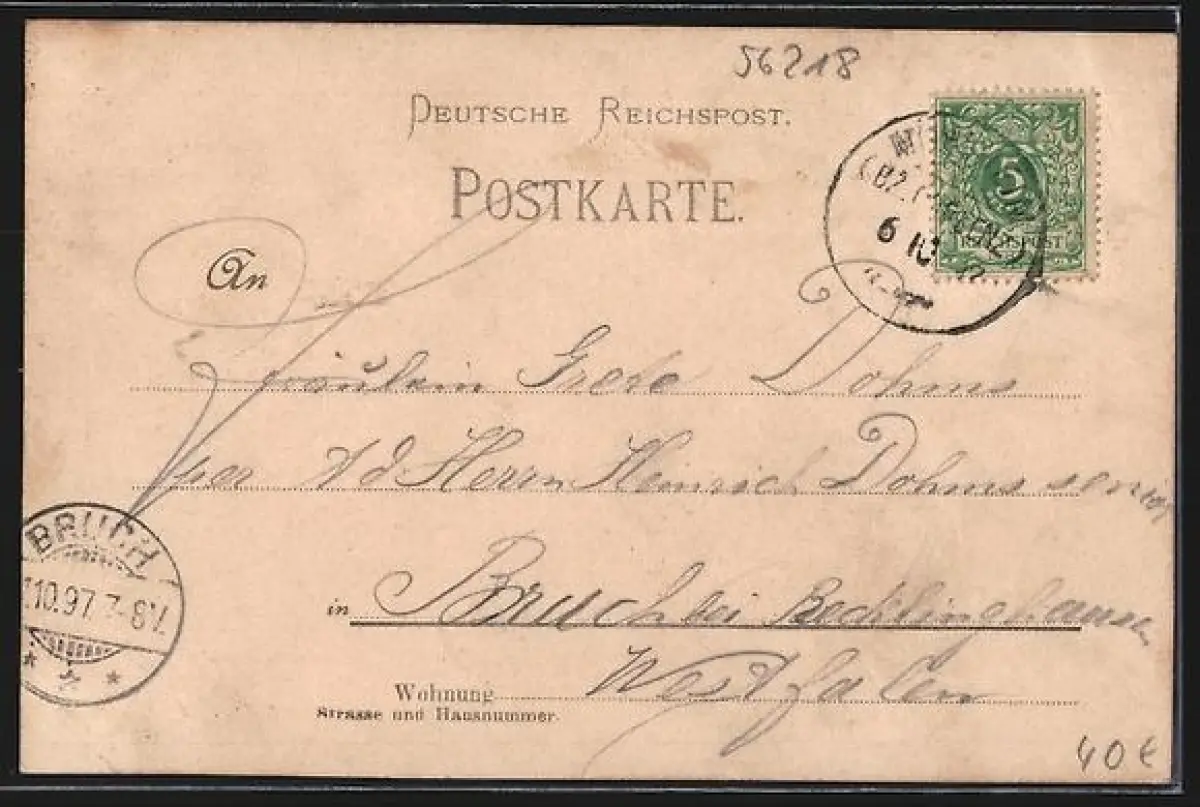 56218
DEUTSCHE REICHSPOST.
POSTKARTE.
5
REICHSPOST
6 10
An
Fräulein Grete Dohms
per Ad Herrn Heinrich Dohms senior
BRUCH
.10.97. 7-8V.
in Bruch bei Recklinghausen
Wohnung Westfalen
Strasse und Hausnummer.
40€